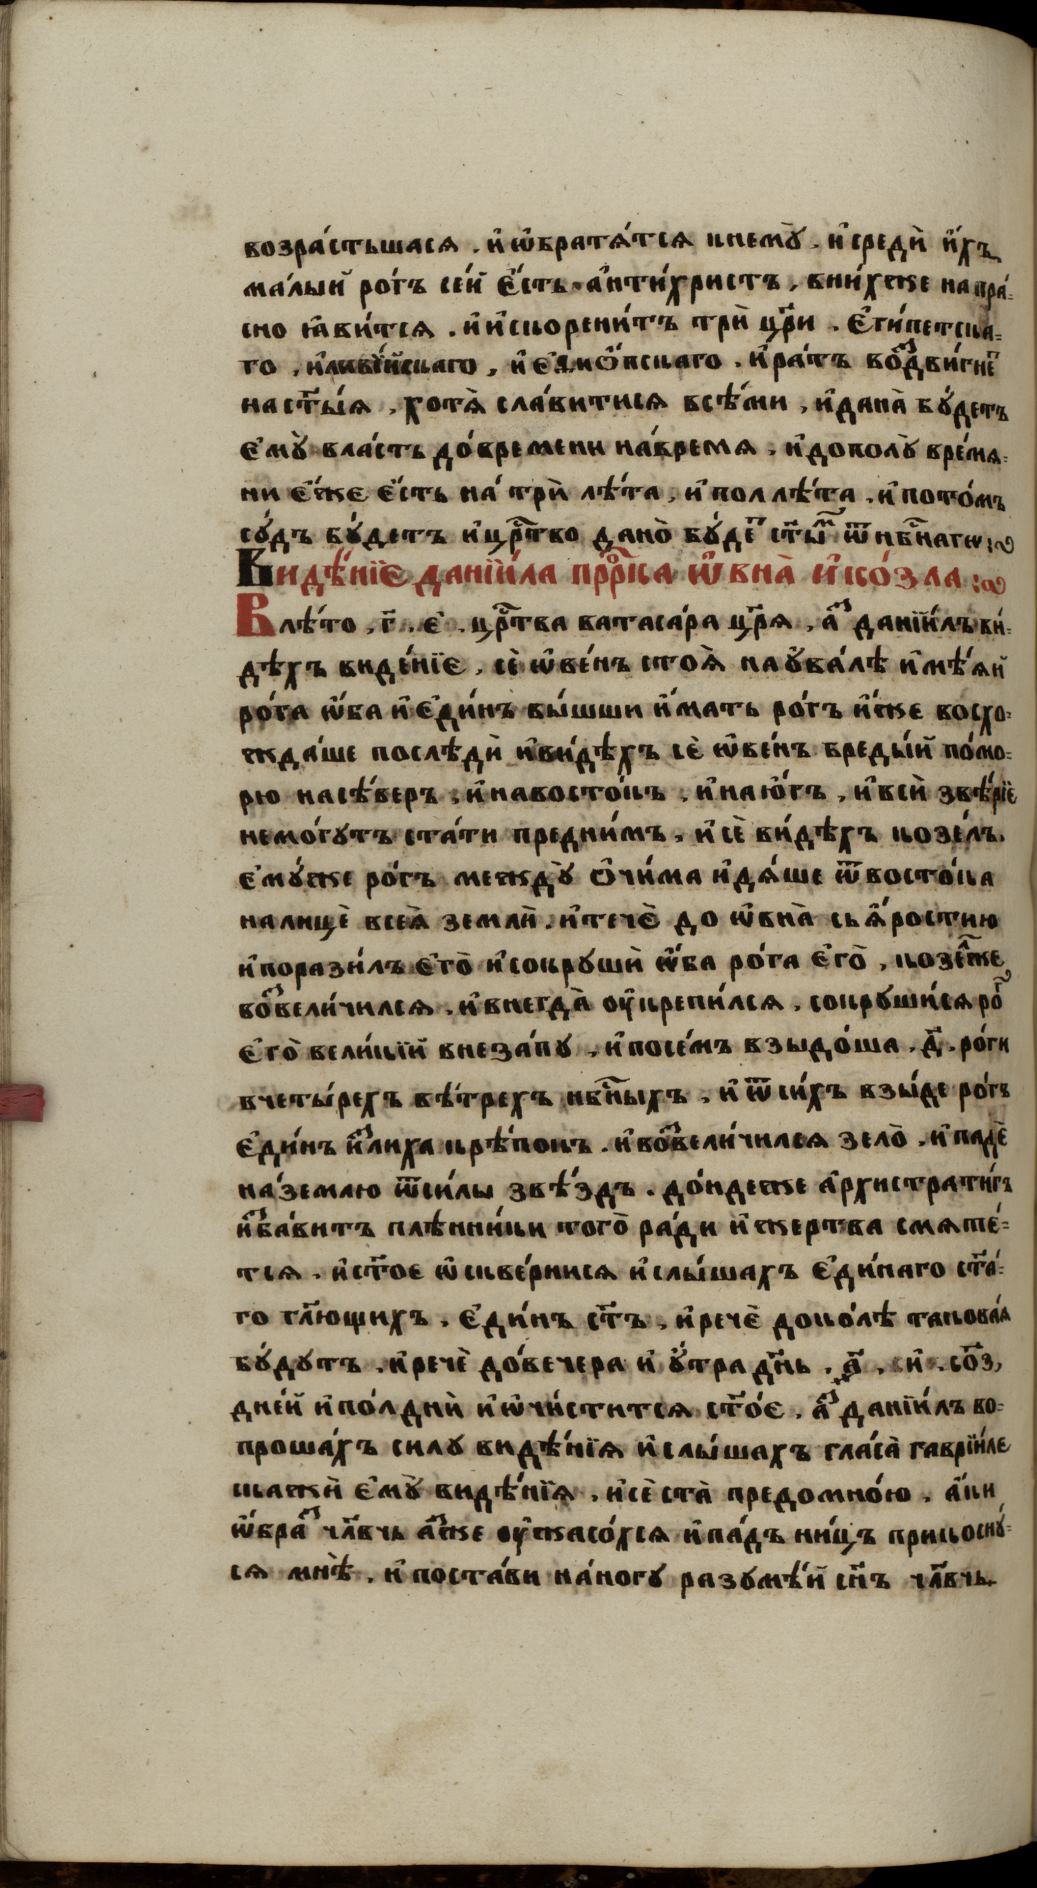 возра́стьшася . и҆ ѡ҆братѧ́тся кнемꙋ̀ . и҆ средѝ и҆́хъ
ма́лый ро́гъ се́й є҆́сть а҆нти́христъ , вни́хже на пра́-
сно ꙗ҆ви́тся . и҆ и҆скорени́тъ трѝ цр҃и . є҆ги́петска-
го , и҆ ливі́йскаго , и҆ є҆ѳїо́пскаго . и҆ ра́ть воз̾дви́гнет̾
на ст҃ы́я , хотѧ̀ сла́витися всѣ́ми , и҆ дана̀ бꙋ́детъ
є҆мꙋ̀ вла́сть до́времени на́время . и҆ до полꙋ̀ вре́мя-
ни є҆́же є҆́сть на́ трѝ лѣ́та , и҆ пол лѣ́та . и҆ пото́мъ
сꙋ́дъ бꙋ́детъ и҆ црⷭ҇тво дано̀ бꙋ́деⷮ ст҃ы́ⷨ ѿ нбⷭ҇нагѡ :~
Видѣ́нїе данїи́ла прⷪ҇рка ѡ҆́ вна̀ и҆ ко́зла :~
В лѣ́то , г҃ . є . црⷭ҇тва ватаса́ра цр҃я , а҆з̾ данїи́лъ ви́-
дѣхъ виде́нїе , сѐ ѡ҆ве́нъ стоѧ̀ на ꙋ҆ва́лѣ и҆мѣ́яй
ро́га ѡ҆́ба и҆ є҆ди́нъ вы́шши и҆́мать ро́гъ и҆́же восхо-
жда́ше послѣдѝ и҆ ви́дѣхъ сѐ ѡ҆ве́нъ бреды́й по́мо-
рю насѣ́веръ , и҆ навосто́къ . и҆ на ю҆́гъ , и҆ всѝ звѣ́рїе
немо́гутъ ста́ти предни́мъ . и҆ сѐ ви́дѣхъ козе́лъ .
є҆мꙋ́же ро́гъ междꙋ̀ ѻ҆чи́ма и҆дѧ́ше ѿ восто́ка
налицѐ всеѧ̀ землѝ . и҆ течѐ до ѡ҆вна̀ сьꙗ҆́ростию
и҆ порази́лъ є҆го̀ и҆ сокрушѝ ѡ҆́ба ро́га є҆го̀ , козеⷧ҇же
воз̾вели́чился . и҆ внегда̀ ѹ҆крепи́лся , сокруши́ся роⷢ҇
є҆го̀ вели́кїй внеза́пу , и҆ посе́мъ взыдо́ша . д҃ . ро́ги
вчеты́рехъ вѣ́трехъ нбⷭ҇ныхъ . и҆ ѿ си́хъ взы́де ро́гъ
є҆ди́нъ и҆з̾лиха крѣ́покъ . и҆ воз̾вели́чился зело̀ . и҆ падѐ
на́землю ѿ си́лы звѣ́здъ . до́ндеже а҆рхистрати́гъ
и҆з̾ба́витъ плѣнники того̀ ра́ди и҆ жертва смяте́-
тся . и҆ ст҃ое ѡ҆скверни́ся и҆ слы́шахъ є҆ди́наго ст҃а́-
го гл҃ющихъ . є҆ди́нъ ст҃ъ , и҆ речѐ доко́лѣ таковая
бꙋ́дутъ . и҆ речѐ до́вечера и҆ ꙋ҆́тра дн҃ь . а҃ . и . со҃з ,
дне́й и҆ по́лднѝ и҆ ѡ҆чи́стится ст҃о́е . а҆з̾ данїи́лъ во-
проша́хъ силу видѣ́нїя и҆ слы́шахъ гла́са̀ гаврїи́ле
скажѝ є҆мꙋ̀ видѣ́нїя , и҆ сѐ ста̀ предомно́ю . а҆́ки
ѡ҆́браз̾ чл҃вчь а҆з̾же ѹ҆жасо́хся и҆ па́дъ ни́цъ прикосну́-
ся мнѣ̀ . и҆ поста́ви на́ногу разумѣ́й сн҃ъ чл҃вчь .